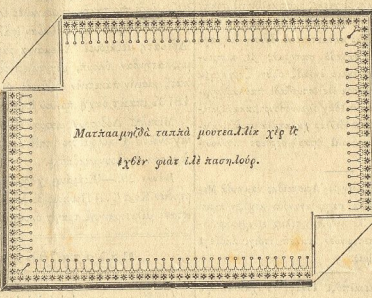 Ματπααμηζδὰ ταππὰ μουτεαλλὶκ χὲρ ἲς
ἐχβὲν φιὰτ ἰλὲ πασηλούρ.